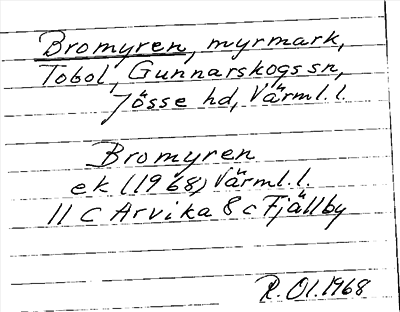 Bromyren, myrmark,
Tobol, Gunnarskogs sn,
Jösse hd, Värml. l.
Bromyren
ek (1968) Värml. l.
11 C Arvika 8 c Fjällby
R. Ol. 1968